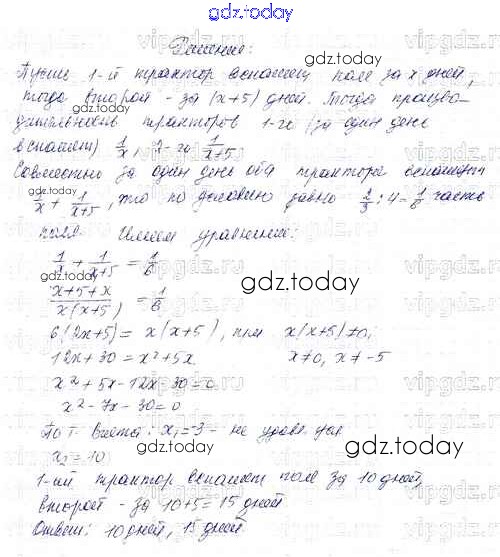 gdz.today
gdz.today
Решение:
Пусть 1-й трактор вспашет поле за x дней,
тогда второй - за (x+5) дней. Тогда произво-
дительность тракторов 1-го (за один день
вспашет) 1/x, 2-го 1/(x+5)
Совместно за один день оба трактора вспашут
1/x + 1/(x+5), что по условию равно 2/3 : 4 = 1/6 часть
поля. Имеем уравнение:
1/x + 1/(x+5) = 1/6
(x+5+x)/(x(x+5)) = 1/6
6(2x+5) = x(x+5), при x(x+5)≠0,
12x+30 = x²+5x x≠0, x≠-5
x²+5x-12x-30=0
x²-7x-30=0
По т. Виета: x₁=-3 - не удовл. усл
x₂=10
1-ый трактор вспашет поле за 10 дней,
второй - за 10+5=15 дней
Ответ: 10 дней, 15 дней.
gdz.today
gdz.today
gdz.today
gdz.today
gdz.today